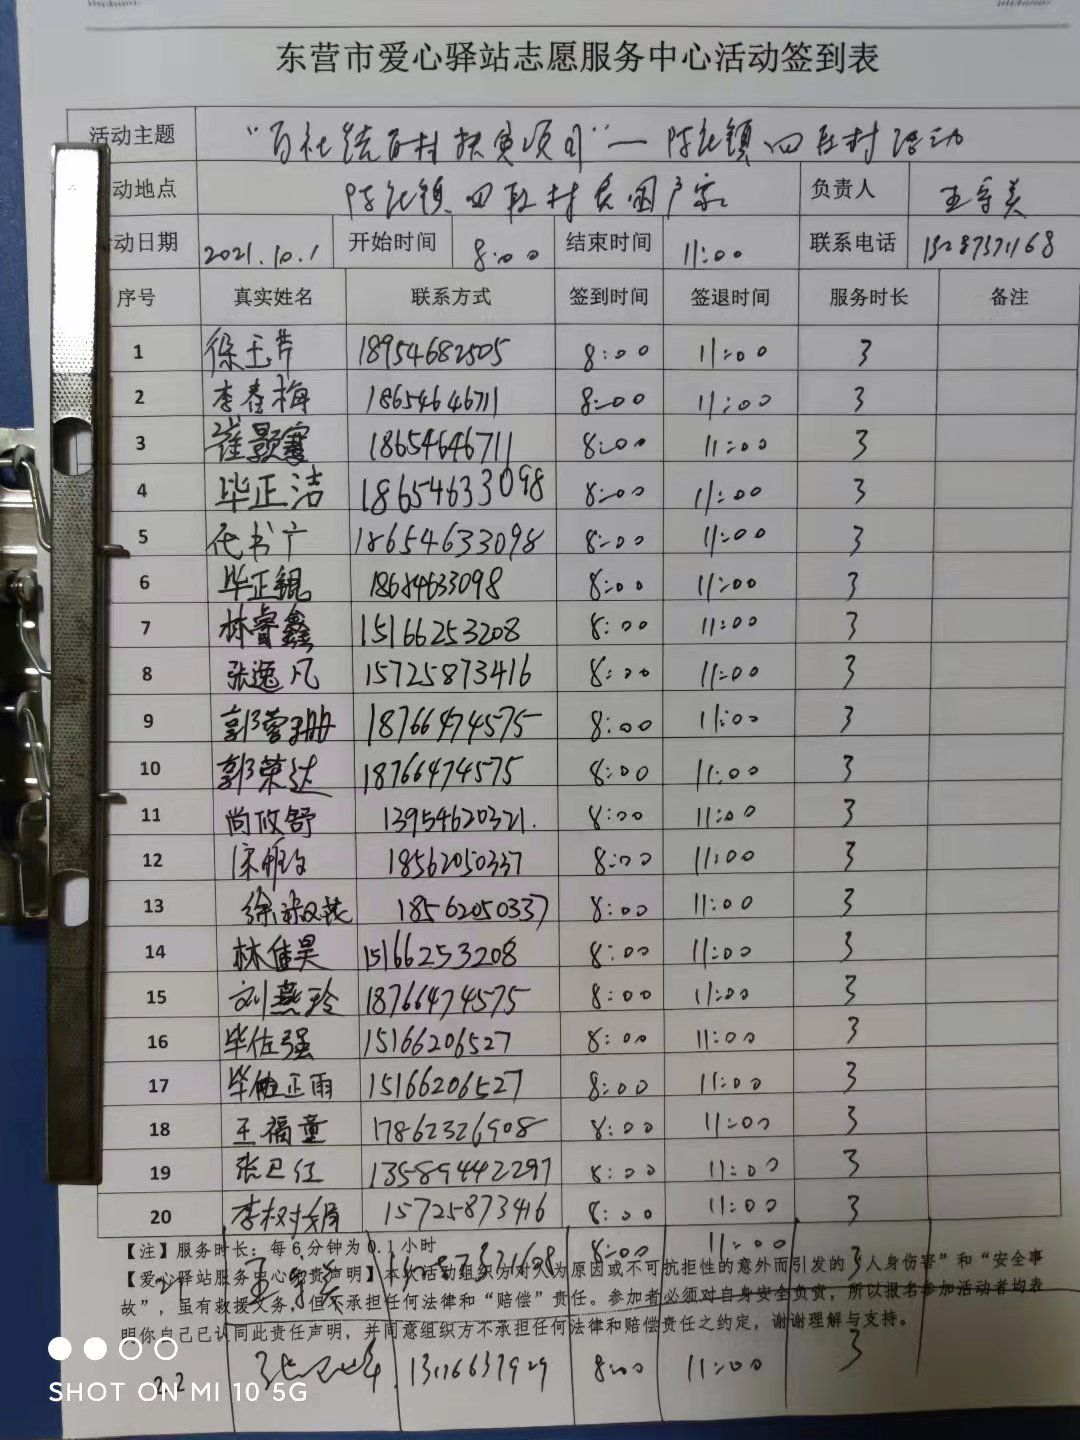 东营市爱心驿站志愿服务中心活动签到表
活动主题 "百社统百村扶贫项目"—陈庄镇四段村活动
动地点 陈庄镇四段村贫困户家 负责人 王守美
动日期 2021.10.1 开始时间 8:00 结束时间 11:00 联系电话
序号 真实姓名 联系方式 签到时间 签退时间 服务时长 备注
1 徐玉芹 18954682505 8:00 11:00 3
2 李春梅 18654646711 8:00 11:00 3
3 崔颢骞 18654646711 8:00 11:00 3
4 毕正洁 18654633098 8:00 11:00 3
5 代书广 18654633098 8:00 11:00 3
6 毕正锟 18654633098 8:00 11:00 3
7 林睿鑫 15166253208 8:00 11:00 3
8 张逸凡 15725873416 8:00 11:00 3
9 郭蓉珊 18766474575 8:00 11:00 3
10 郭荣达 18766474575 8:00 11:00 3
11 尚政舒 13954620321. 8:00 11:00 3
12 18562050337 8:00 11:00 3
13 徐淑英 18562050337 8:00 11:00 3
14 林佳昊 15166253208 8:00 11:00 3
15 刘燕玲 18766474575 8:00 11:00 3
16 毕佐强 15166206527 8:00 11:00 3
17 毕正雨 15166206527 8:00 11:00 3
18 王福童 17862326908 8:00 11:00 3
19 张卫红 13589442297 8:00 11:00 3
20 李树娟 15725873416 8:00 11:00 3
【注】服务时长：每6分钟为0.1小时
21 王守美 8:00 11:00 3
【爱心驿站服务中心免责声明】本次活动组织方对人为原因或不可抗拒性的意外而引发的"人身伤害"和"安全事
故"，虽有救援义务，但不承担任何法律和"赔偿"责任。参加者必须对自身安全负责，所以报名参加活动者均表
明你自己已认同此责任声明，并同意组织方不承担任何法律和赔偿责任之约定，谢谢理解与支持。
22 8:00 11:00 3
SHOT ON MI 10 5G